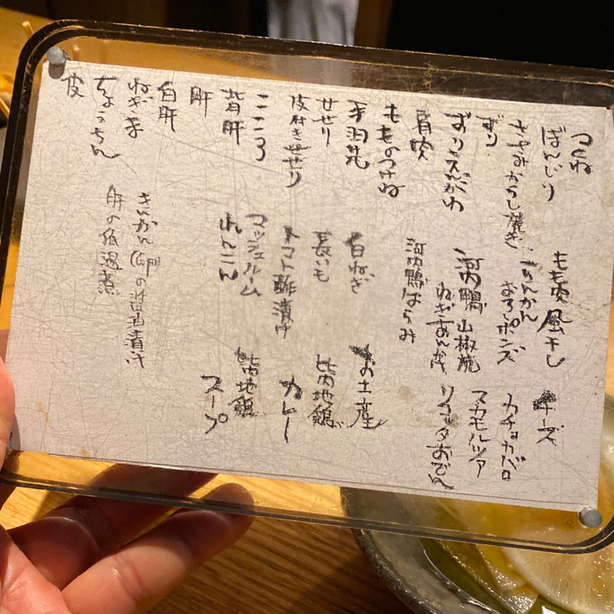 つくね
ぼんじり
ささみからし焼き
ずり
ずりえんがわ
肩肉
もものつけね
手羽先
せせり
皮付きせせり
こころ
背肝
肝
白肝
ねぎま
ちょうちん
皮
もも肉風干し
ちんかん
おろポンズ
河内鴨山椒焼
ねぎあん皮
河内鴨はらみ
白ねぎ
長いも
トマト酢漬け
マッシュルーム
れんこん
きんかん(卵)の醤油漬け
肝の低温煮
チーズ
カチョカバロ
スカモルツァ
リコッタおでん
お土産
比内地鶏
カレー
比内地鶏
スープ